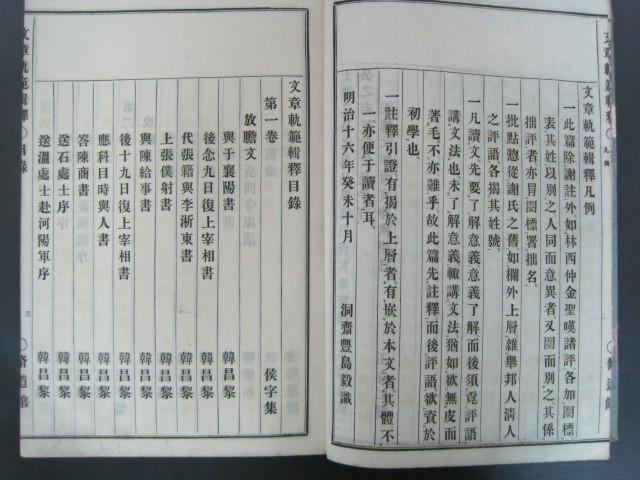 文章軌範輯釋凡例
一此篇除謝註外如林西仲金聖嘆諸評各加圈標
表其姓以別之人同而意異者又圈而別之其係
拙評者亦冒圈標署拙名
一批點惣從謝氏之舊如欄外上層雜舉邦人清人
之評語各揭其姓號
一凡讀文先要了解意義意義了解而後須竟評語
講文法也未了解意義輙講文法猶如欲無皮而
著毛不亦難乎故此篇先註釋而後評語欲責於
初學也
一註釋引證有揭於上層者有嵌於本文者其體不
一亦便于讀者耳
明治十六年癸未十月 洞齋豐島毅識
文章軌範輯釋
凡例
文章軌範輯釋目錄
第一卷 侯字集
放膽文
與于襄陽書 韓昌黎
後念九日復上宰相書 韓昌黎
代張籍與李浙東書 韓昌黎
上張僕射書 韓昌黎
與陳給事書 韓昌黎
後十九日復上宰相書 韓昌黎
應科目時與人書 韓昌黎
答陳商書 韓昌黎
送石處士序 韓昌黎
送溫處士赴河陽軍序 韓昌黎
文章軌範輯釋
目錄
三